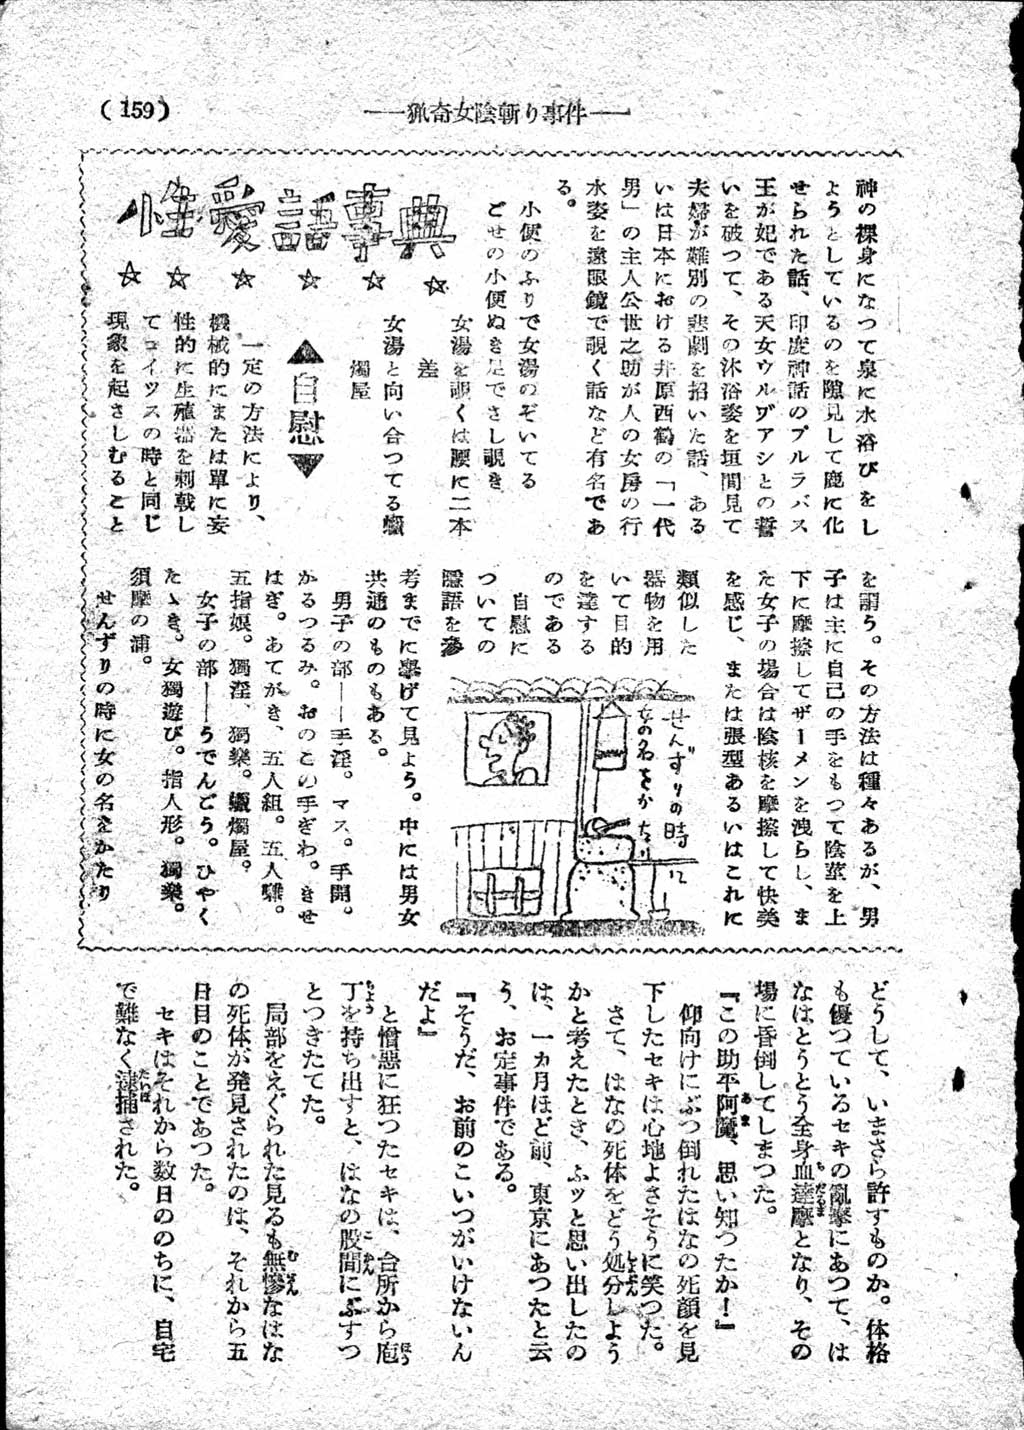 (159)
――猟奇女陰斬り事件――
神の裸身になつて泉に水浴びをし
ようとしているのを隙見して鹿に化
せられた話、印度神話のプルラバス
王が妃である天女ウルヷアシとの誓
いを破つて、その沐浴姿を垣間見て
夫婦が難別の悲劇を招いた話、ある
いは日本における井原西鶴の「一代
男」の主人公世之助が人の女房の行
水姿を遠眼鏡で覗く話など有名であ
る。
小便のふりで女湯のぞいてる
ごぜの小便ぬき足でさし覗き
女湯を覗くは腰に二本
差
女湯と向い合つてる蠟
燭屋
性愛語事典
▲自慰▼
一定の方法により、
機械的にまたは單に妄
性的に生殖器を刺戟し
てコイツスの時と同じ
現象を起さしむること
を謂う。その方法は種々あるが、男
子は主に自己の手をもつて陰莖を上
下に摩擦してザーメンを洩らし、ま
た女子の場合は陰核を摩擦して快美
を感じ、または張型あるいはこれに
類似した
器物を用
いて目的
を達する
のである
自慰に
ついての
隱語を參
考までに擧げて見よう。中には男女
共通のものもある。
男子の部――手淫。マス。手開。
かるつるみ。おのこの手ぎわ。きせ
はぎ。あてがき、五人組。五人囃。
五指娘。獨淫、獨樂。蠟燭屋。
女子の部――うでんごう。ひやく
たゝき。女獨遊び。指人形。獨樂。
須摩の浦。
せんずりの時に女の名をかたり
せんずりの時に
女の名をかたり
どうして、いまさら許すものか。体格
も優つているセキの亂擊にあつて、は
なはとうとう全身血達摩となり、その
場に昏倒してしまつた。
『この助平阿魔、思い知つたか！』
仰向けにぶつ倒れたはなの死顔を見
下したセキは心地よさそうに笑つた。
さて、はなの死体をどう処分しよう
かと考えたとき、ふッと思い出したの
は、一カ月ほど前、東京にあつたと云
う、お定事件である。
『そうだ、お前のこいつがいけないん
だよ』
と憎惡に狂つたセキは、台所から庖
丁を持ち出すと、はなの股間にぶすつ
とつきたてた。
局部をえぐられた見るも無慘なはな
の死体が発見されたのは、それから五
日目のことであつた。
セキはそれから数日ののちに、自宅
で難なく逮捕された。